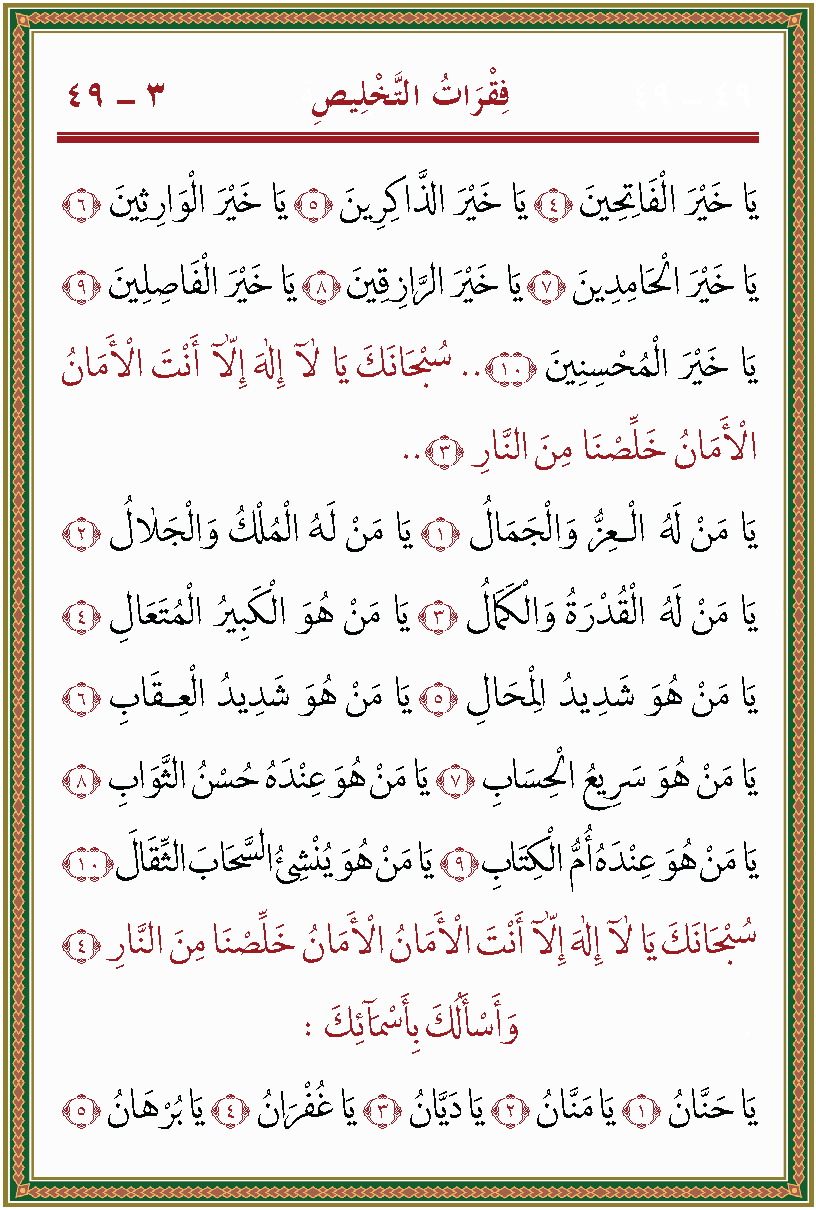 فِقْرَاتُ التَّخْلِيصِ ٣ ـ ٤٩
يَا خَيْرَ الْفَاتِحِينَ ﴿٤﴾ يَا خَيْرَ الذَّاكِرِينَ ﴿٥﴾ يَا خَيْرَ الْوَارِثِينَ ﴿٦﴾
يَا خَيْرَ الْحَامِدِينَ ﴿٧﴾ يَا خَيْرَ الرَّازِقِينَ ﴿٨﴾ يَا خَيْرَ الْفَاصِلِينَ ﴿٩﴾
يَا خَيْرَ الْمُحْسِنِينَ ﴿١٠﴾.. سُبْحَانَكَ يَا لَٓا إِلٰهَ إِلَّٓا أَنْتَ الْأَمَانُ
الْأَمَانُ خَلِّصْنَا مِنَ النَّارِ ﴿٣﴾..
يَا مَنْ لَهُ الْعِزُّ وَالْجَمَالُ ﴿١﴾ يَا مَنْ لَهُ الْمُلْكُ وَالْجَلَالُ ﴿٢﴾
يَا مَنْ لَهُ الْقُدْرَةُ وَالْكَمَالُ ﴿٣﴾ يَا مَنْ هُوَ الْكَبِيرُ الْمُتَعَالِ ﴿٤﴾
يَا مَنْ هُوَ شَدِيدُ الْمِحَالِ ﴿٥﴾ يَا مَنْ هُوَ شَدِيدُ الْعِقَابِ ﴿٦﴾
يَا مَنْ هُوَ سَرِيعُ الْحِسَابِ ﴿٧﴾ يَا مَنْ هُوَ عِنْدَهُ حُسْنُ الثَّوَابِ ﴿٨﴾
يَا مَنْ هُوَ عِنْدَهُ أُمُّ الْكِتَابِ ﴿٩﴾ يَا مَنْ هُوَ يُنْشِئُ السَّحَابَ الثِّقَالَ ﴿١٠﴾
سُبْحَانَكَ يَا لَٓا إِلٰهَ إِلَّٓا أَنْتَ الْأَمَانُ الْأَمَانُ خَلِّصْنَا مِنَ النَّارِ ﴿٤﴾
وَأَسْأَلُكَ بِأَسْمَٓائِكَ :
يَا حَنَّانُ ﴿١﴾ يَا مَنَّانُ ﴿٢﴾ يَا دَيَّانُ ﴿٣﴾ يَا غُفْرَانُ ﴿٤﴾ يَا بُرْهَانُ ﴿٥﴾